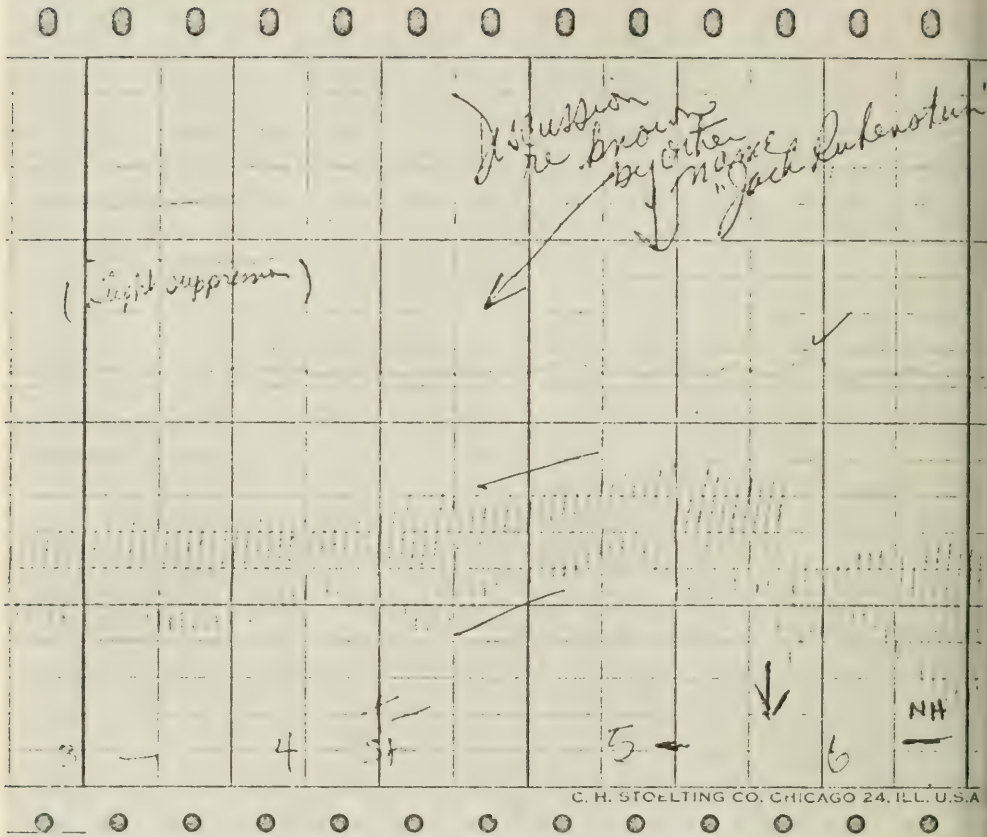 Discussion
re known
by other
names
"Jack Rubenstein"
(Slight suppression)
3 4 5 6
NH
C. H. STOELTING CO. CHICAGO 24, ILL. U.S.A